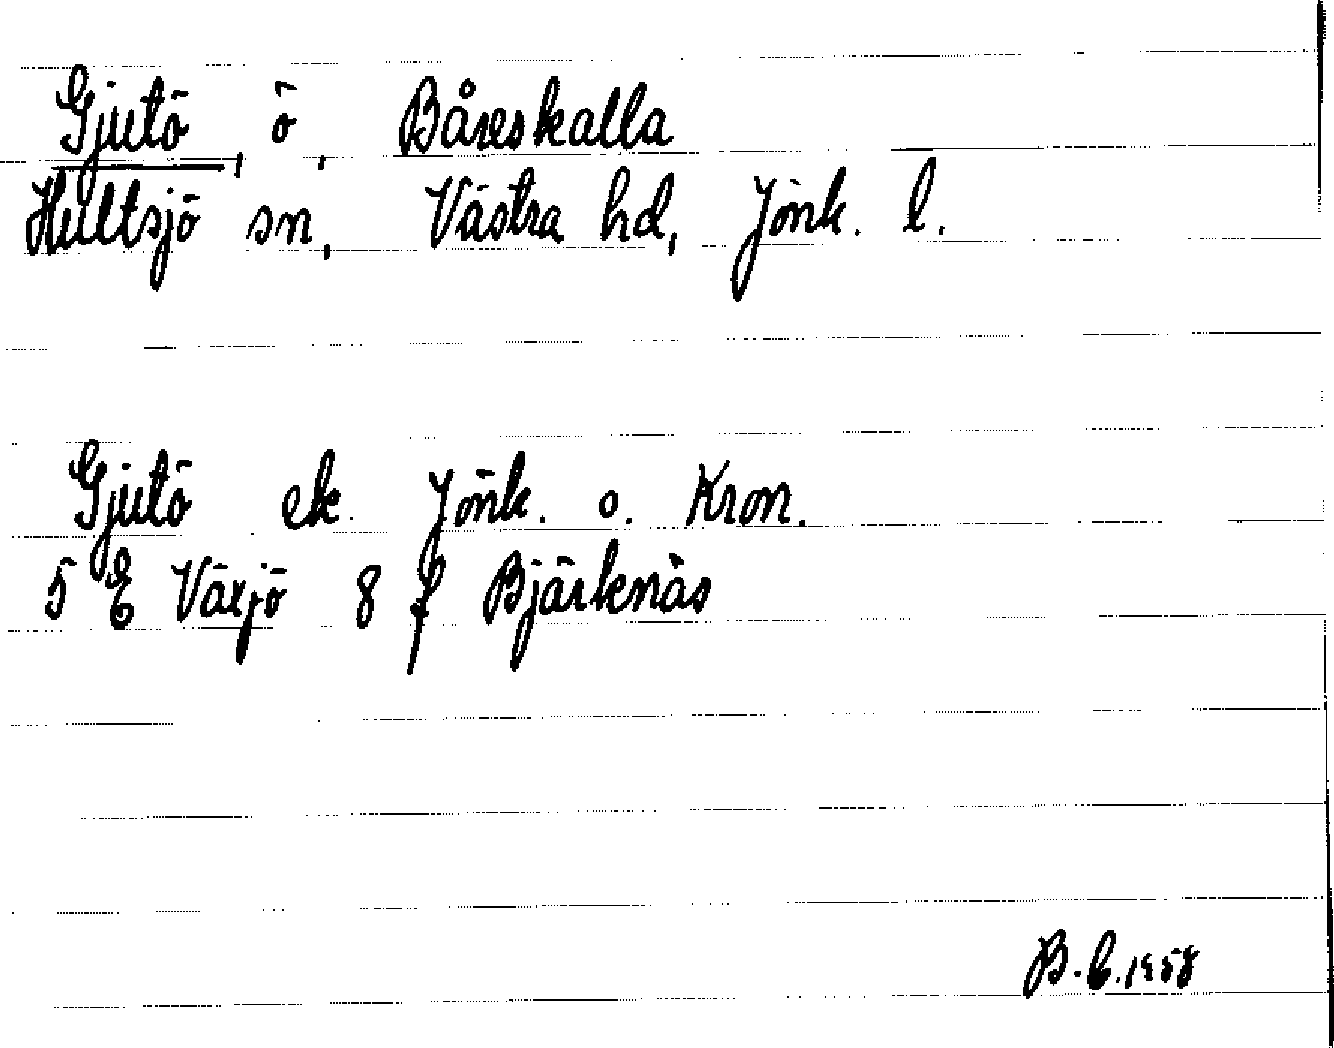 Gjutö, ö, Båreskalla
Hultsjö sn, Västra hd, Jönk. l.
Gjutö ek. Jönk. o. Kron.
5 E Växjö 8 f Bjärknäs
B. E. 1958